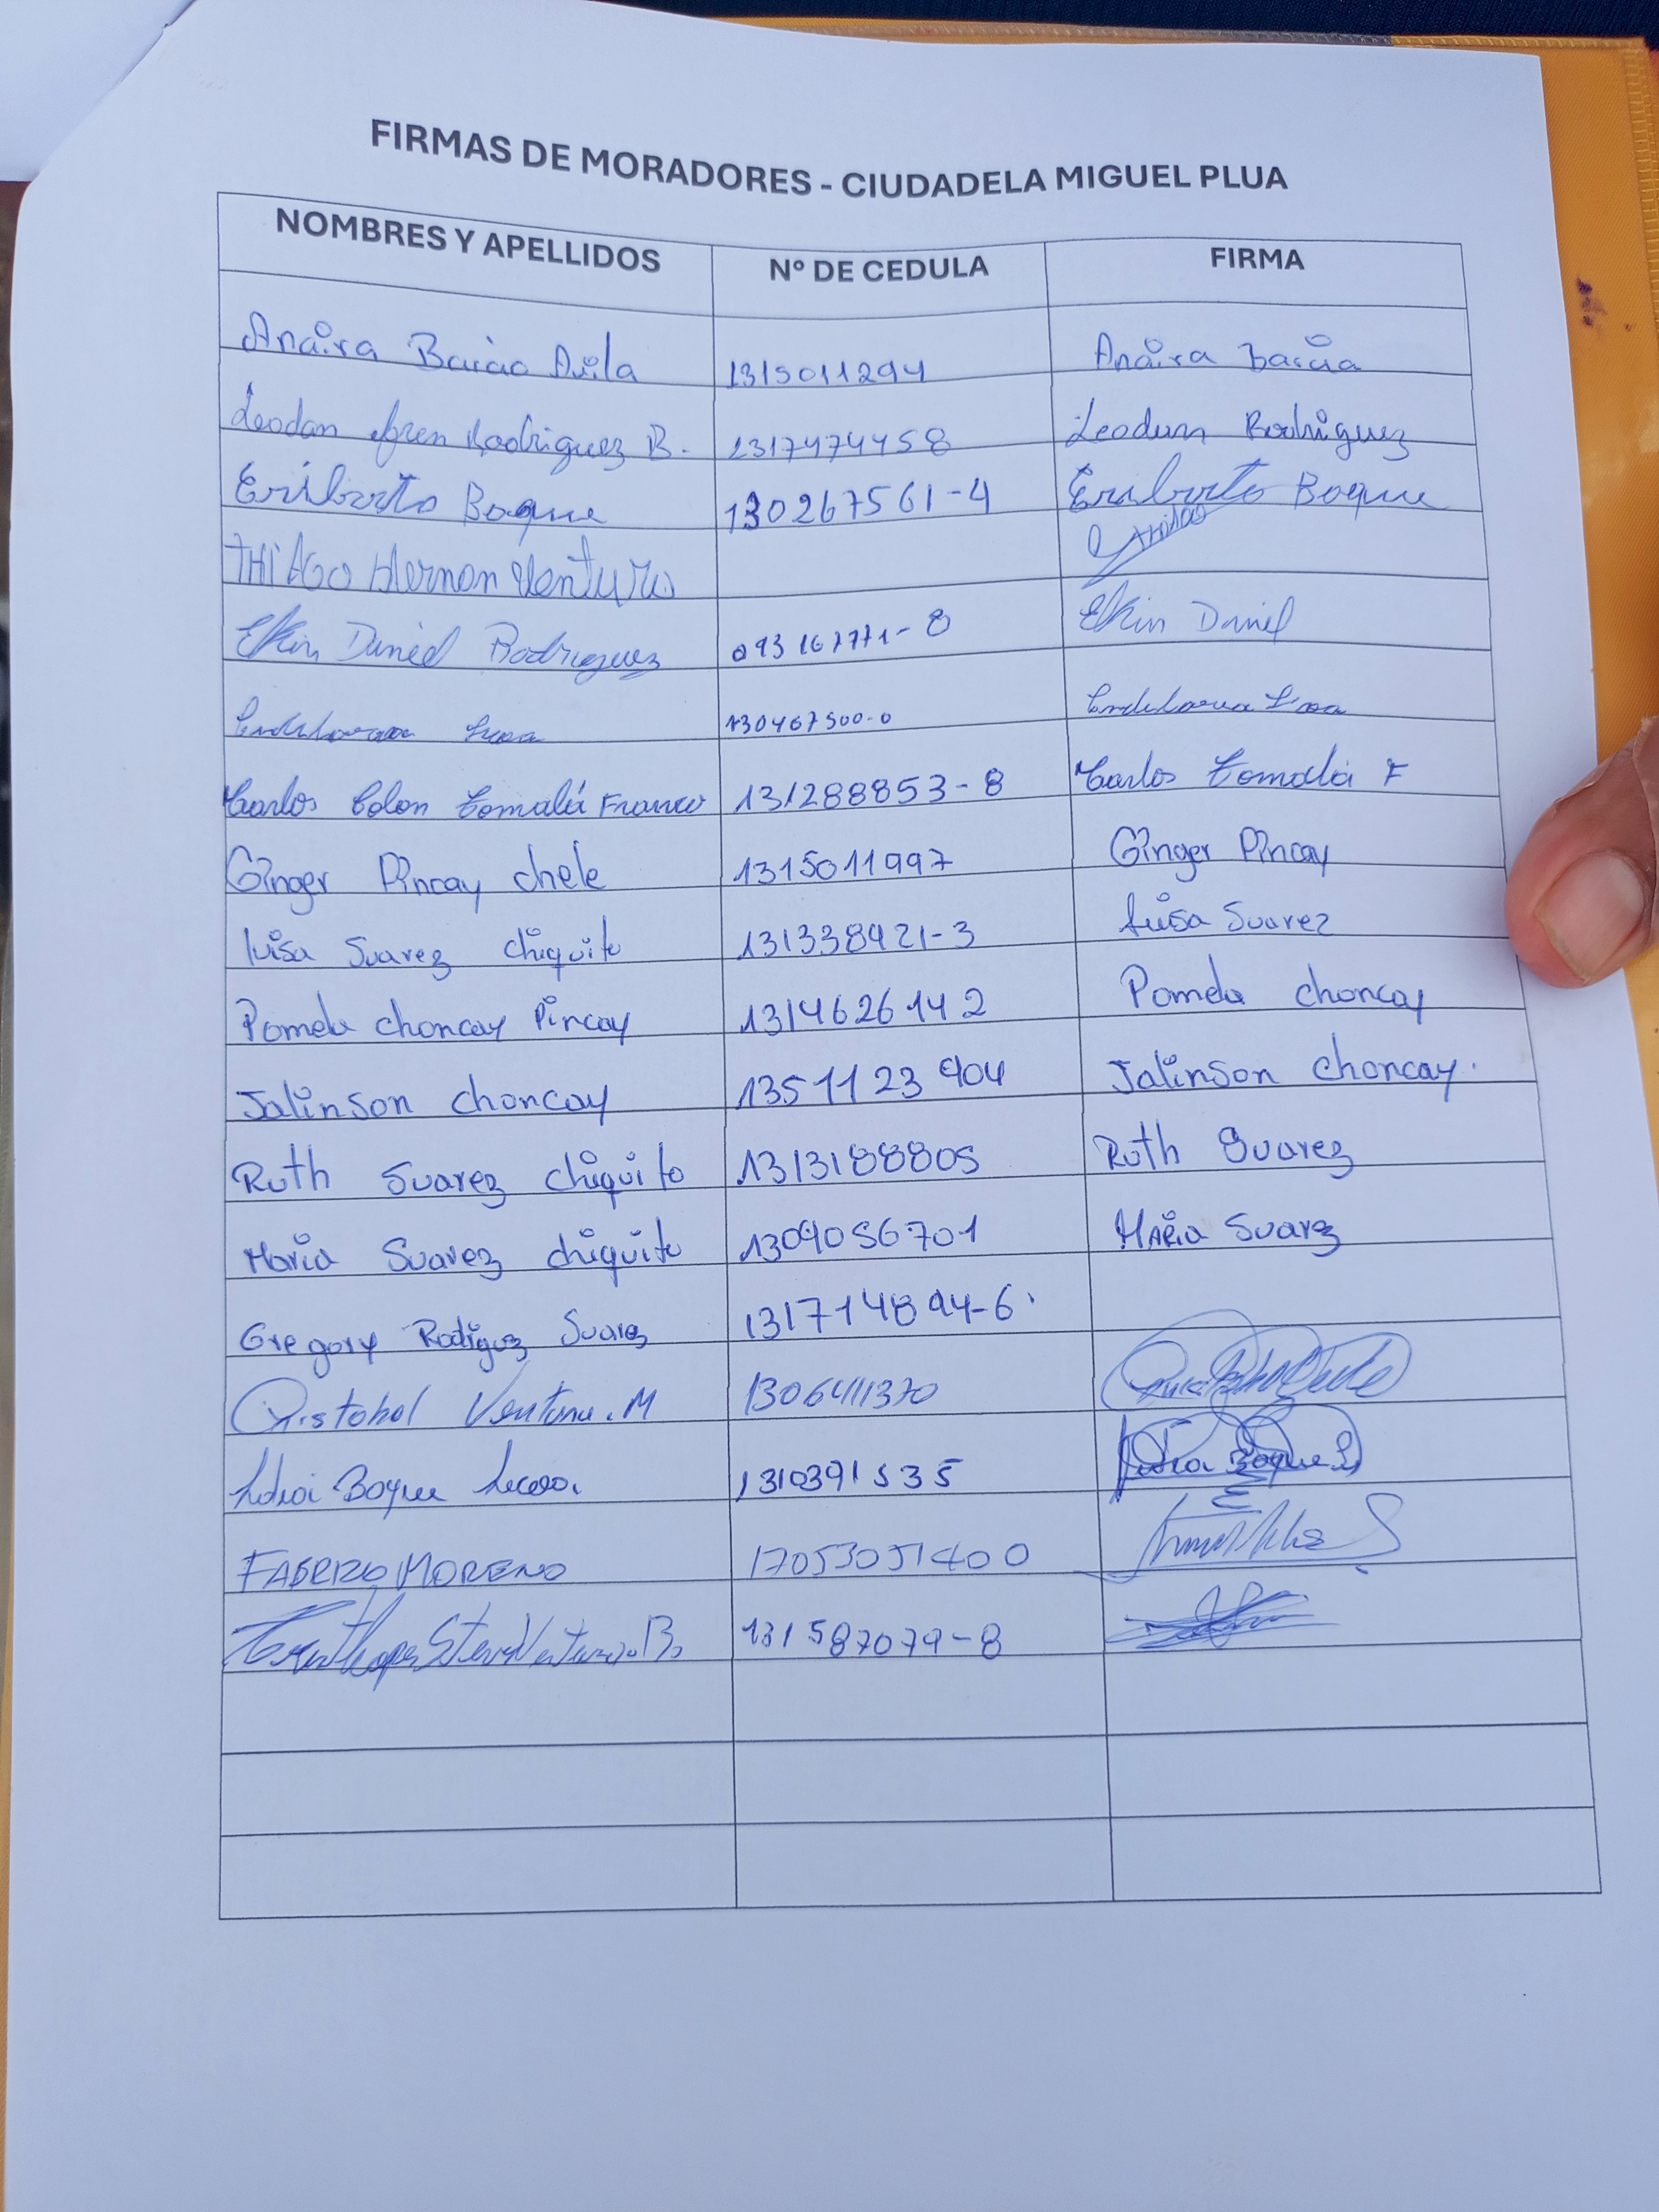 FIRMAS DE MORADORES - CIUDADELA MIGUEL PLUA
NOMBRES Y APELLIDOS Nº DE CEDULA FIRMA
Anaira Barcia Avila 1315011294 Anaira barcia
Leodan Rodriguez B. 1317474458 Leodan Rodriguez
Eriberto Boque 130267561-4 Eriberto Boque
THIAGO Hernan Ventura
Elkin Daniel Rodriguez 093167771-8 Elkin Daniel
130467500-0
Carlos Colon Tomalá Franco 131288853-8 Carlos Tomalá F
Ginger Pincay chele 1315011997 Ginger Pincay
luisa Suarez chiquito 131338421-3 luisa Suarez
Pamela choncay Pincay 1314626142 Pamela choncay
Jalinson choncay 1351123904 Jalinson choncay.
Ruth Suarez chiquito 1313188805 Ruth Suarez
Maria Suarez chiquito 1309056701 MARia Suarez
Gregory Rodiguz Suarez 131714894-6
Cristobal Ventura.M 1306411370
Boque 1310391535 Boque L
FABRIZIO MORENO 17053051400
Steven Ventura B. 131587079-8